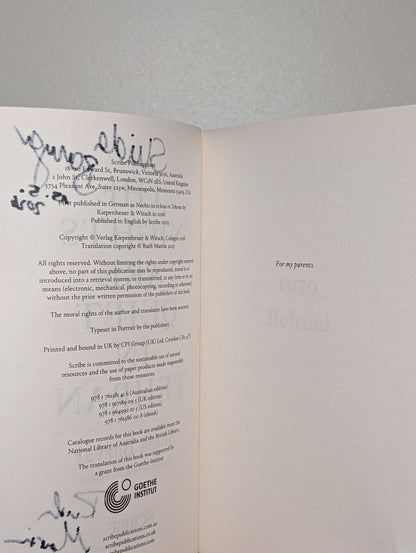 Shida
Bazyar
Scribe Publications
18–20 Edward St, Brunswick, Victoria 3056, Australia
2 John St, Clerkenwell, London, WC1N 2ES, United Kingdom
3754 Pleasant Ave, Suite 223w, Minneapolis, Minnesota 55409, USA
First published in German as Nachts ist es leise in Teheran by
Kiepenheuer & Witsch in 2016
Published in English by Scribe 2025
Copyright © Verlag Kiepenheuer & Witsch, Cologne 2016
Translation copyright © Ruth Martin 2025
All rights reserved. Without limiting the rights under copyright reserved
above, no part of this publication may be reproduced, stored in or
introduced into a retrieval system, or transmitted, in any form or by any
means (electronic, mechanical, photocopying, recording or otherwise)
without the prior written permission of the publishers of this book.
The moral rights of the author and translator have been asserted.
Typeset in Portrait by the publishers
Printed and bound in UK by CPI Group (UK) Ltd, Croydon CR0 4YY
Scribe is committed to the sustainable use of natural
resources and the use of paper products made responsibly
from those resources.
978 1 761381 41 6 (Australian edition)
978 1 917189 09 5 (UK edition)
978 1 964992 10 5 (US edition)
978 1 761386 00 8 (ebook)
Catalogue records for this book are available from the
National Library of Australia and the British Library.
The translation of this book was supported by
a grant from the Goethe-Institut
GOETHE
INSTITUT
scribepublications.com.au
scribepublications.co.uk
scribepublications.com
Ruth
Martin
For my parents
1979
Behzad